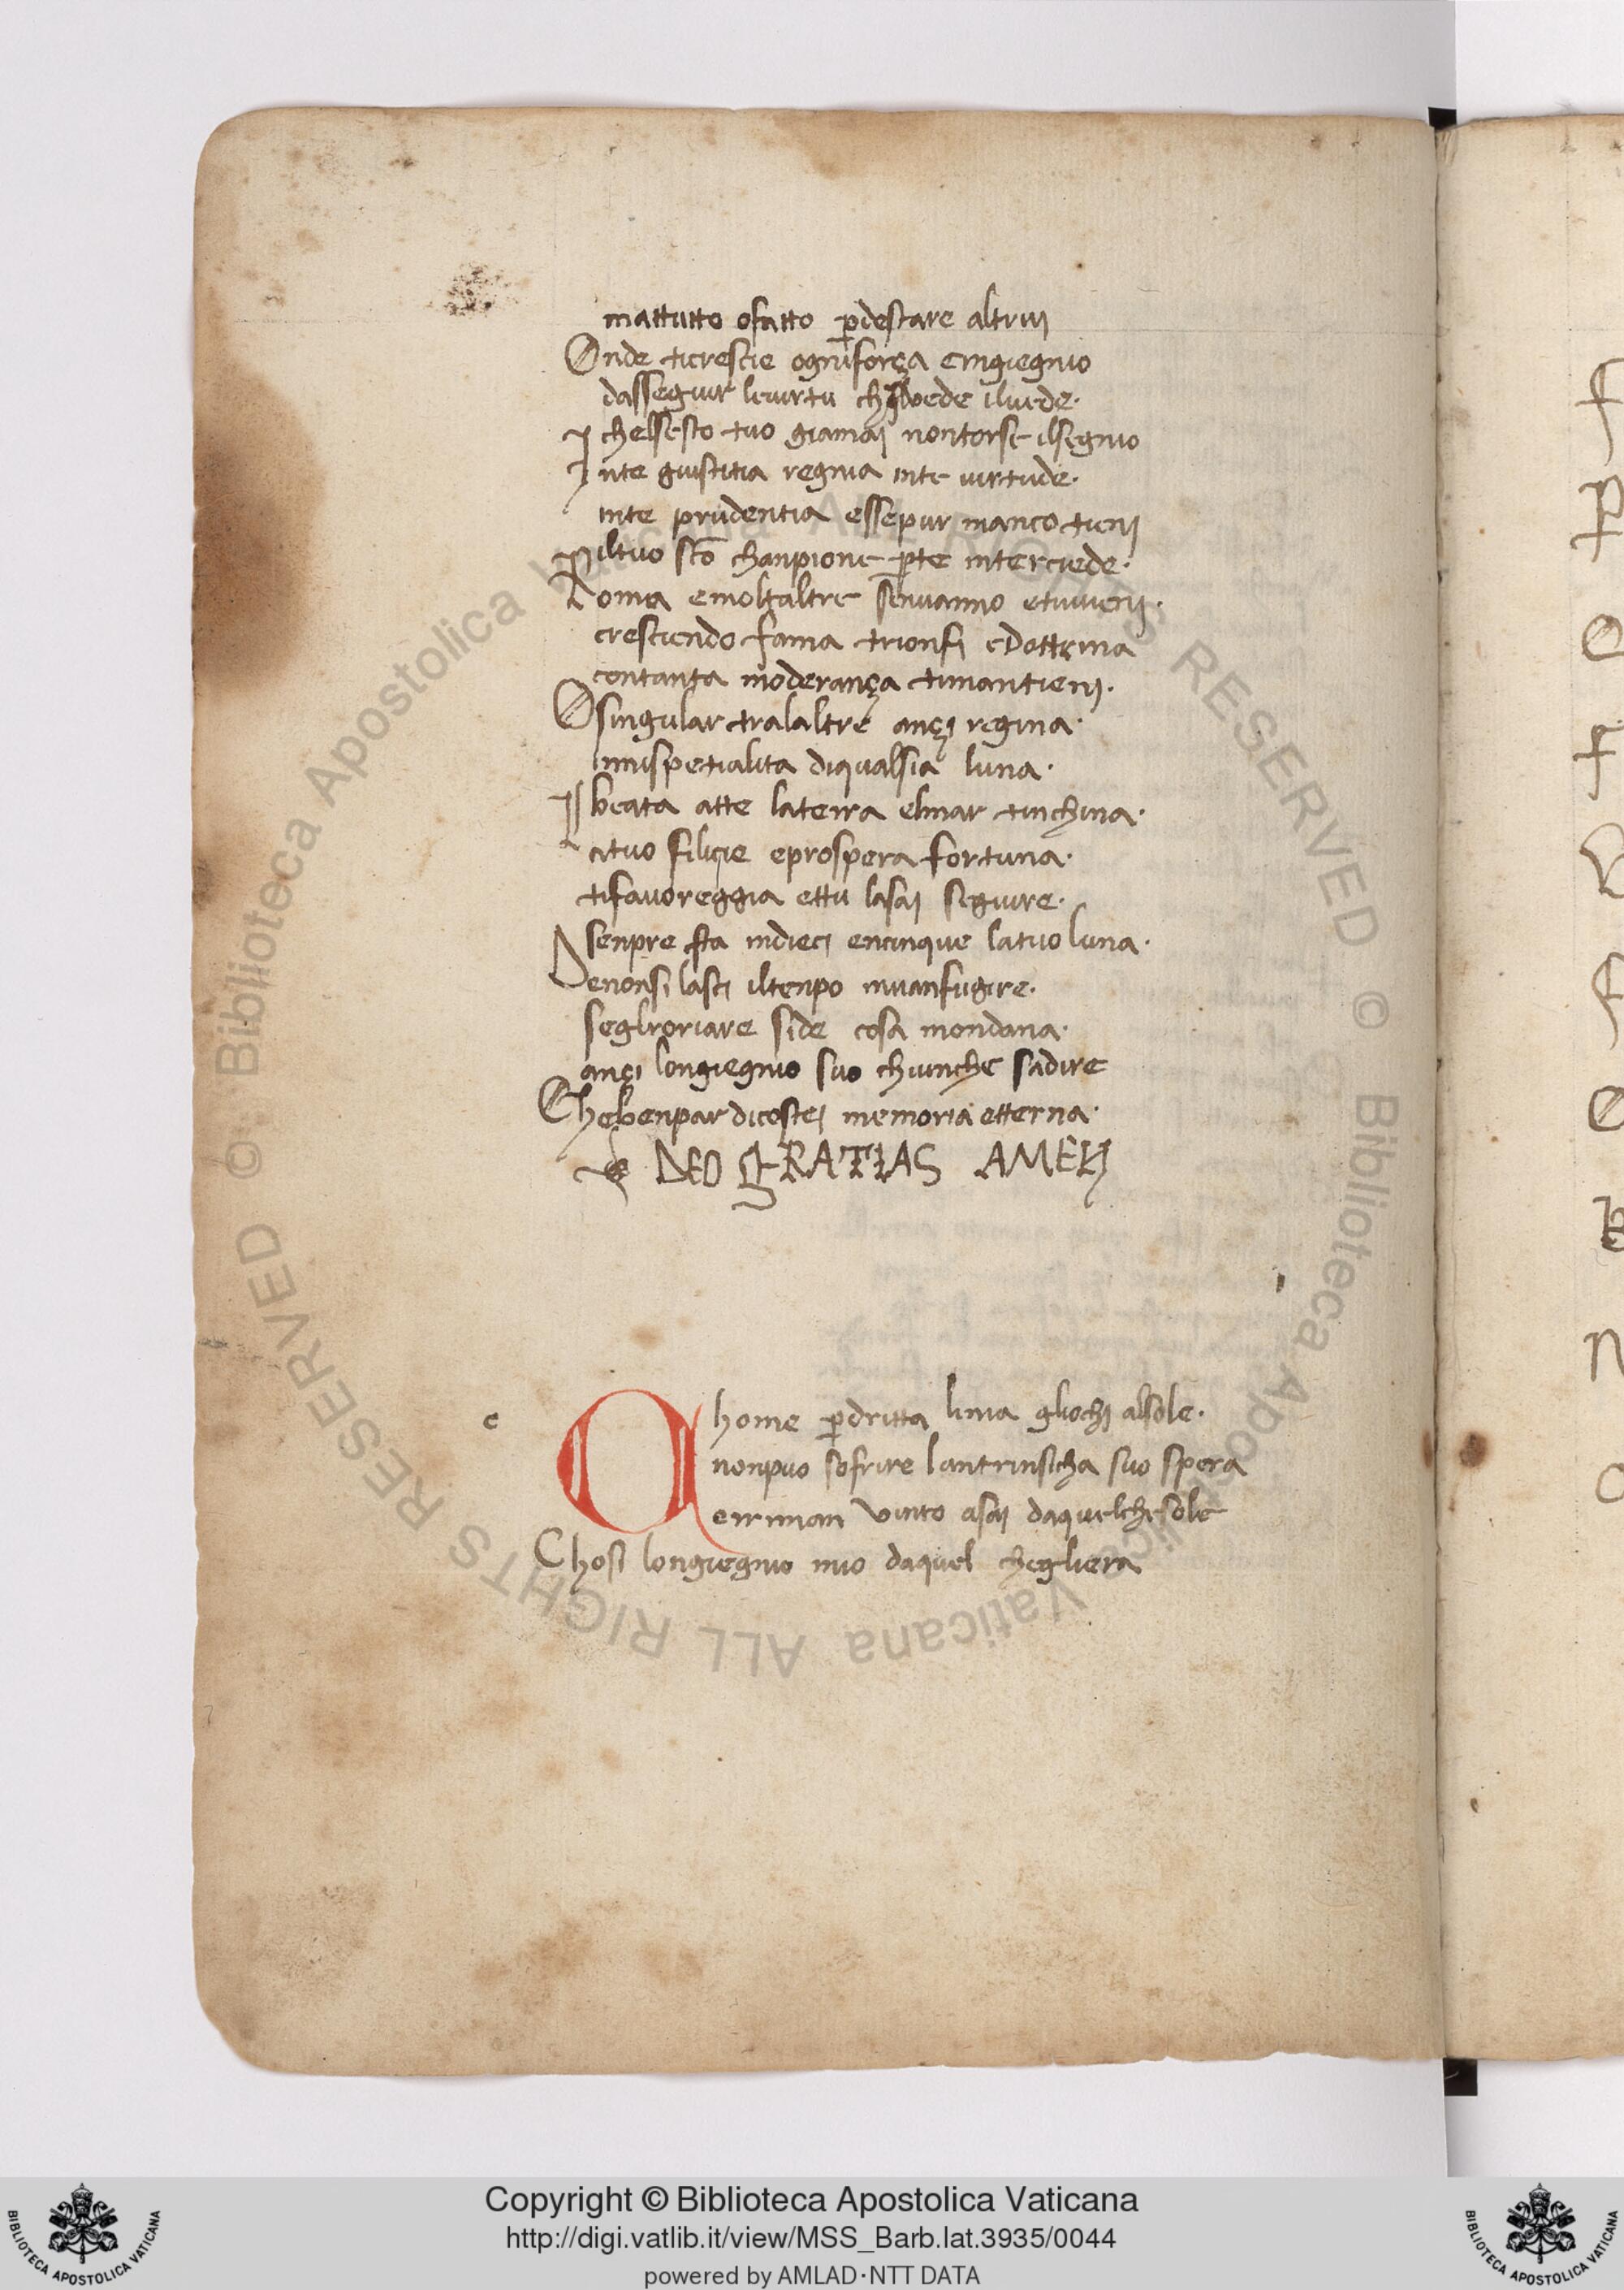 mattutto ofatto ꝑdestare altruj
Onde ticrescie ognifforça eingiegnio
dasseguir leuirtu iluede.
I chelsesto tuo giamaj nontorse ilsegnio
Inte giustitia regnia inte uirtude.
inte prudentia essepur manco tienj
P iltuo sc̄o chanpione ꝑte interciede.
Roma emoltaltre senuanno etuuienj.
cresciendo fama trionfi edottrina
contanta moderança timantienj.
Osingular tralaltre ançi regina.
inuispetialita diqualsia luna.
beata atte laterra elmar tinchina.
atuo filicie eprospera fortuna.
tifauoreggia ettu lasaj seguire.
senpre sta indieci encinque latuo luna.
Denonsi lasci iltenpo inuanfugire.
seglroriare side cosa mondana.
ançi longiegnio suo chiunche sadire
Chebenpar dicostej memoria etterna.
DEO GRATIAS AMEN
c
Chome ꝑdritta linia gliochj alsole.
nonpuo sofrire lantrinsicha suo spera
erriman vinto asaj daquelchesole
Chosi longiegnio mio daquel chegliera
Copyright © Biblioteca Apostolica Vaticana
http://digi.vatlib.it/view/MSS_Barb.lat.3935/0044
powered by AMLAD·NTT DATA
BIBLIOTECA APOSTOLICA VATICANA
BIBLIOTECA APOSTOLICA VATICANA
© Biblioteca Apostolica Vaticana ALL RIGHTS RESERVED
© Biblioteca Apostolica Vaticana ALL RIGHTS RESERVED